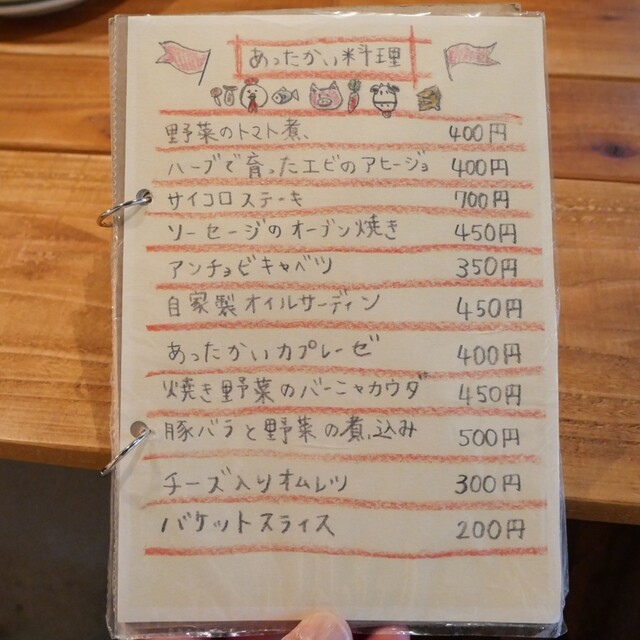 あったかい料理
野菜のトマト煮 400円
ハーブで育ったエビのアヒージョ 400円
サイコロステーキ 700円
ソーセージのオーブン焼き 450円
アンチョビキャベツ 350円
自家製オイルサーディン 450円
あったかいカプレーゼ 400円
焼き野菜のバーニャカウダ 450円
豚バラと野菜の煮込み 500円
チーズ入りオムレツ 300円
バケットスライス 200円